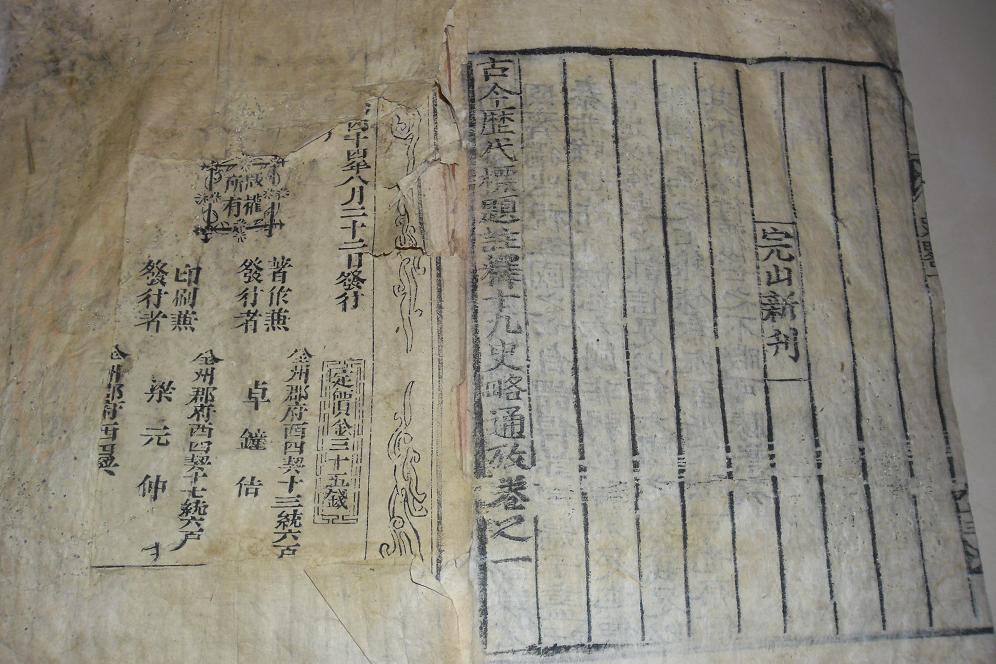 完山新刊
古今歷代標題註釋十九史略通攷卷之一
四十四年八月二十二日發行
定價金三十五錢
版權
所有
全州郡府西四契十三統六戶
著作兼
發行者
卓鐘佶
全州郡府西四契十七統六戶
印刷兼
發行者
梁元仲
全州郡府西四契